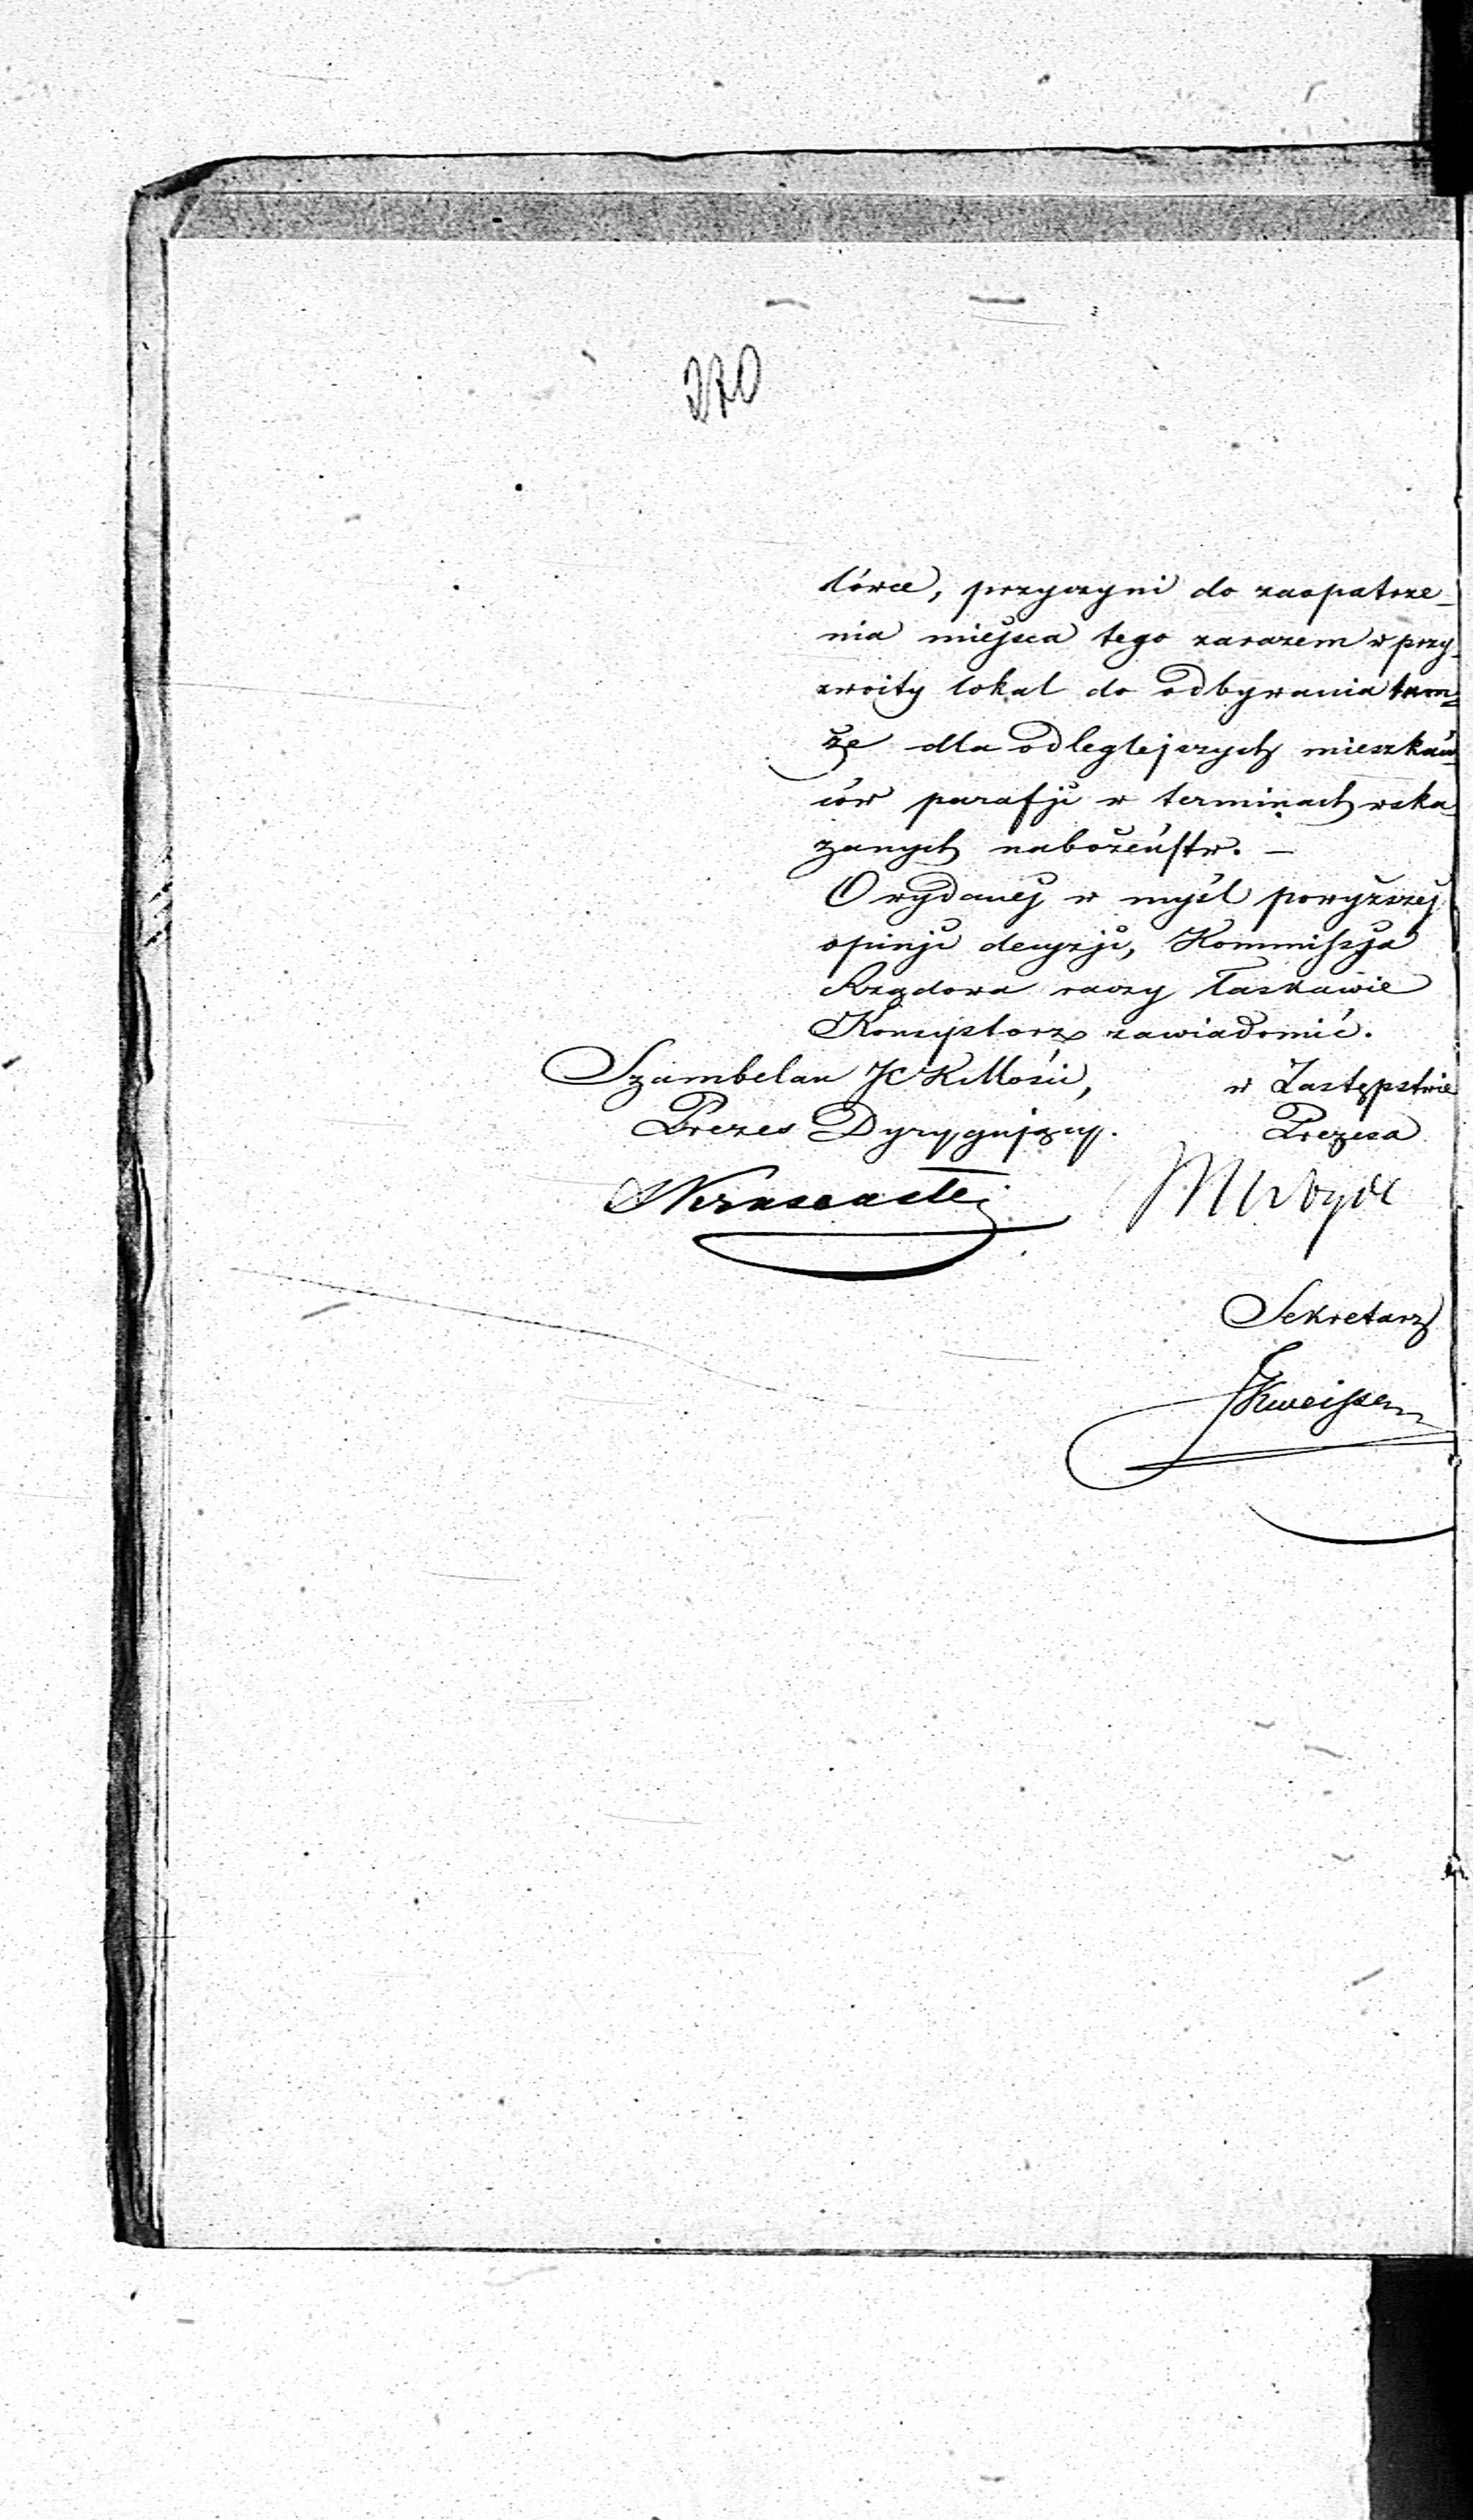 270
tówce, przyczyni do zaopatrze-
nia miejsca tego zarazem w przy-
zwoity lokal do odbywania tam-
że dla odleglejszych mieszkań-
ców parafji w terminach wska-
zanych nabożeństw. —
O wydanej w myśl powyższej
opinji decyzji, Kommissya
Rządowa raczy łaskawie
Konsystorz zawiadomić.
Szambelan JCKMości, w Zastępstwie
Prezes Dyrygujący. Prezesa
Sekretarz